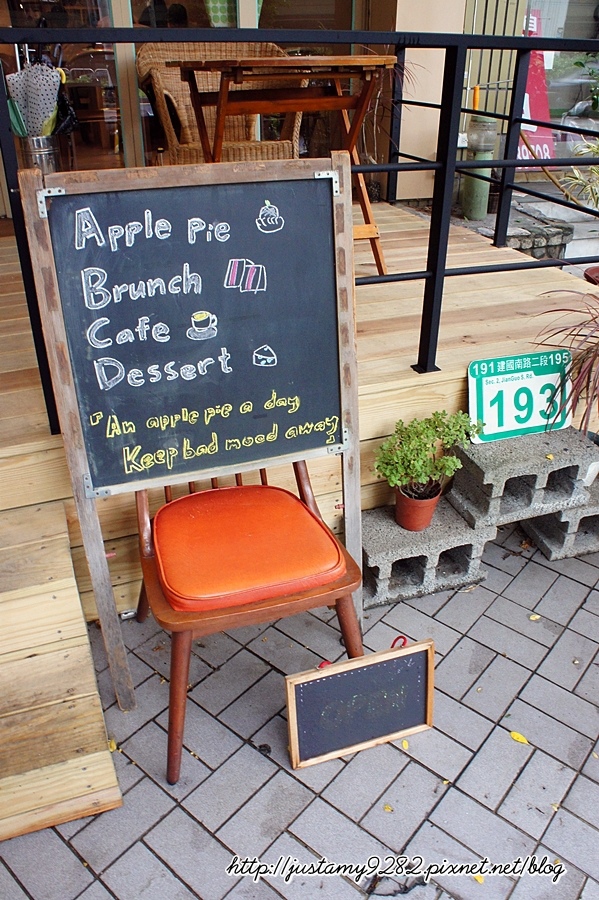 Apple pie
Brunch
Cafe
Dessert
「An apple pie a day
Keep bad mood away
191 建國南路二段 195
Sec. 2, JianGuo S. Rd.
193
OPEN
http://justamy9282.pixnet.net/blog